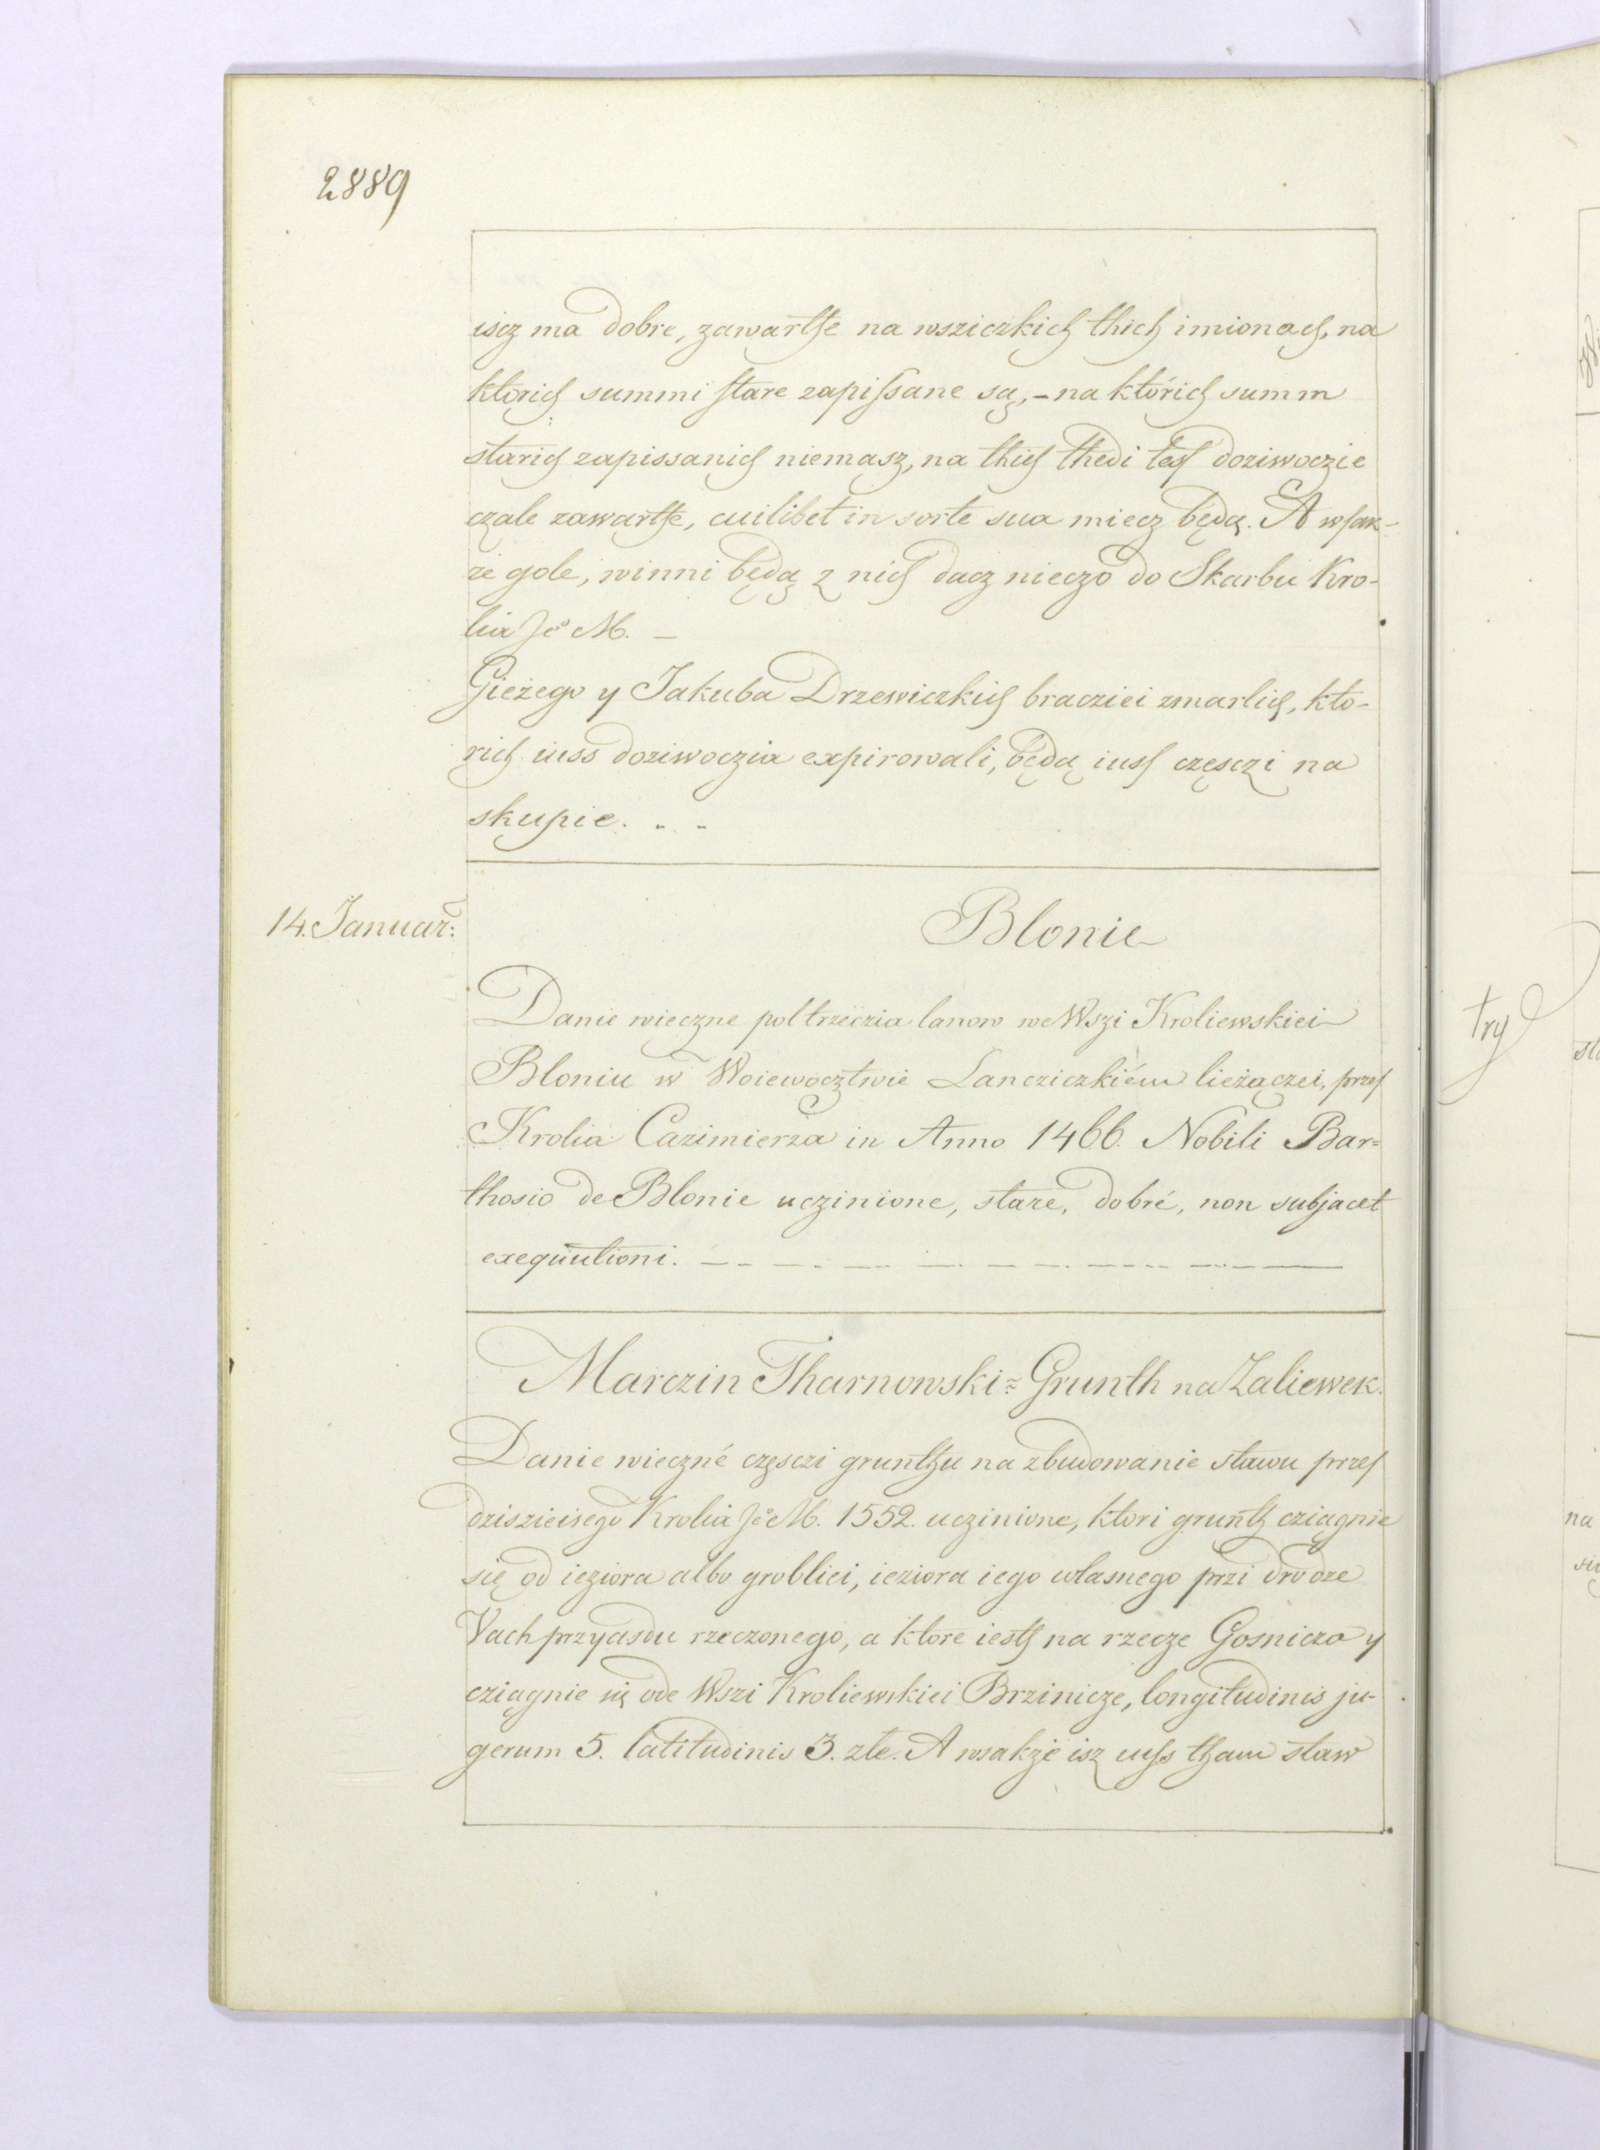 2889
iscz ma dobre, zawarthe na wsziczkich thich imionach, na
ktorich summi stare zapissane są, - na którich summ
starich zapissanich niemasz, na thich thedi tesz doziwoczie
czale zawarthe, cuilibet in sorte sua miecz będą. A wsak-
ze gole, winni będą z nich dacz nieczo do Skarbu Kro-
lia Je° M. —
Gieżego y Jakuba Drzewiczkich bracziei zmarlich, kto-
rich iuss doziwoczia expirowali, będą iuss częsczi na
skupie. . .
14. Januar:
Blonie
Danie wieczne poltrzeczia lanow we Wszi Kroliewskiei
Bloniu w Woiewocztwie Lancziczkiém lieżączei, przes
Krolia Cazimierza in Anno 1466. Nobili Bar=
thosio de Blonie uczinione, stare, dobré, non subjacet
exequutioni.
Marczin Tharnowski = Grunth na Zaliewek.
Danie wieczné częsczi grunthu na zbudowanie stawu przes
dziszieisego Krolia Je° M. 1552. uczinione, ktori grunth cziągnie
się od ieziora albo grobliei, ieziora iego własnego przi drodze
Vach przyasdu rzeczonego, a ktore iesth na rzecze Gosnicza y
cziągnie się ode Wszi Kroliewskiei Brzinicze, longitudinis ju-
gerum 5. latitudinis 3. zte. A wsakże isz uss tham staw
try
na